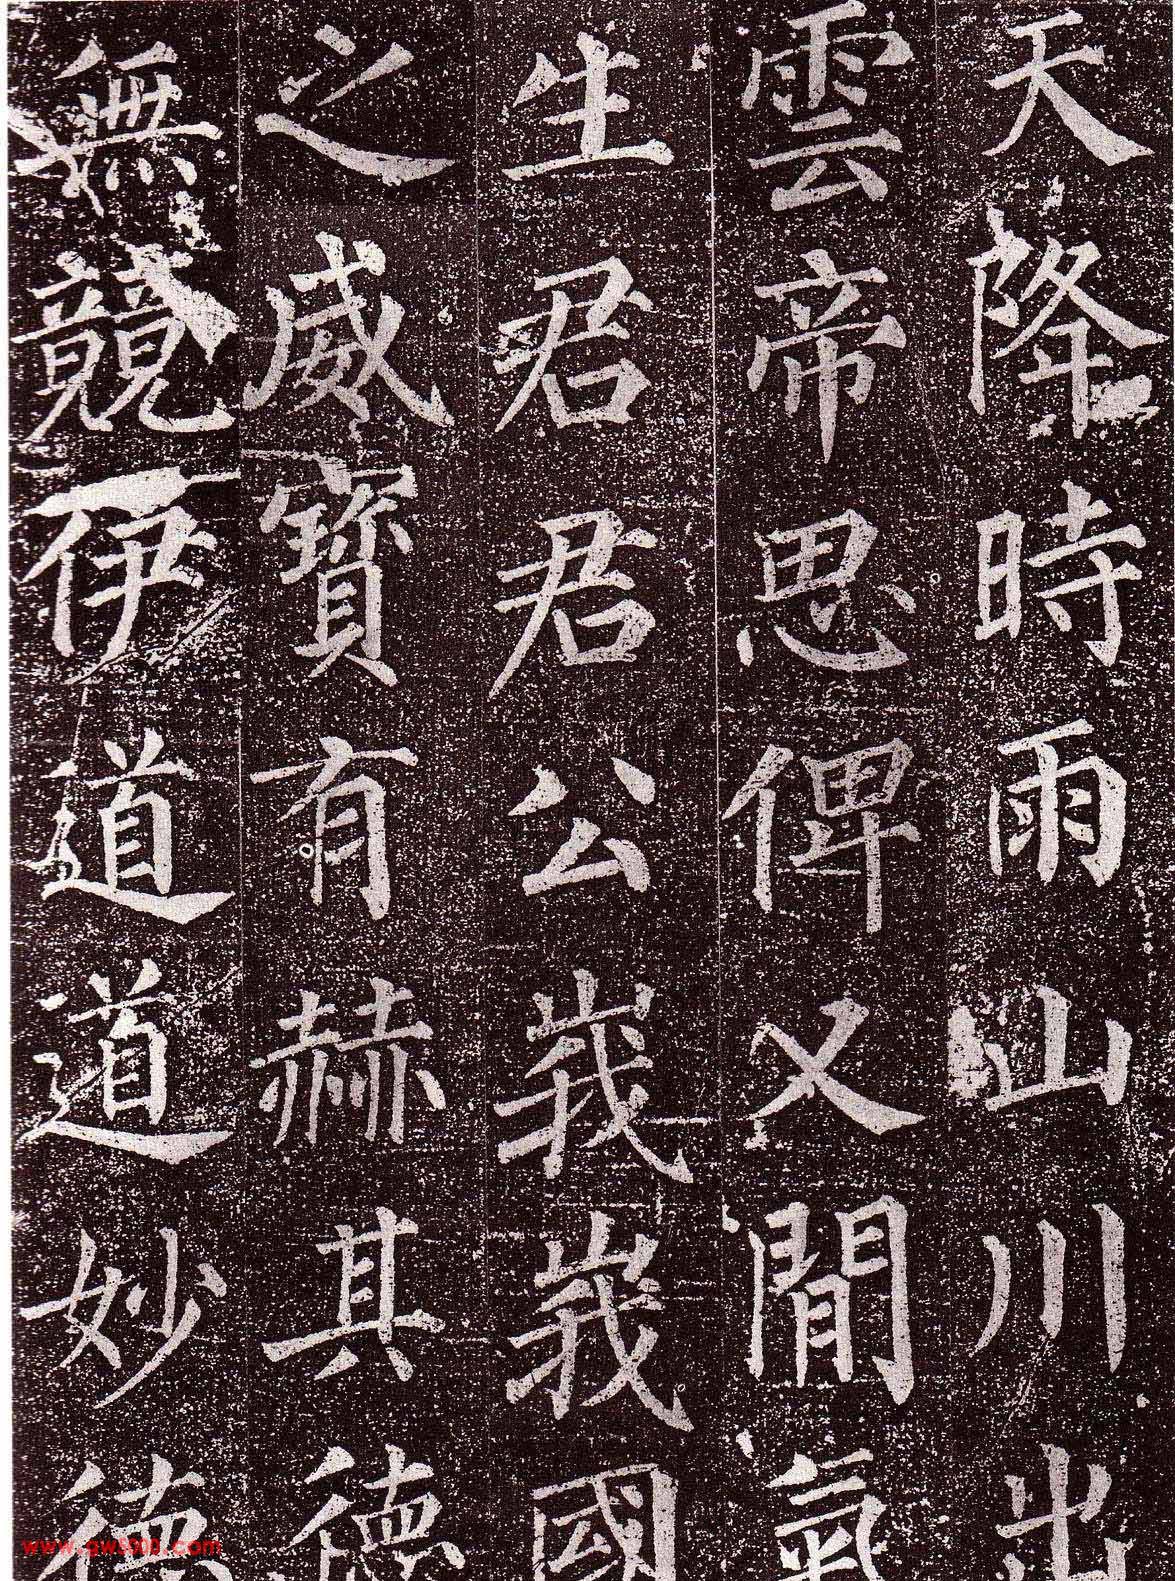 天降時雨山川出
雲帝思俾乂閒氣
生君君公峩峩國
之威寶有赫其德
無競伊道道妙德
www.gws908.com